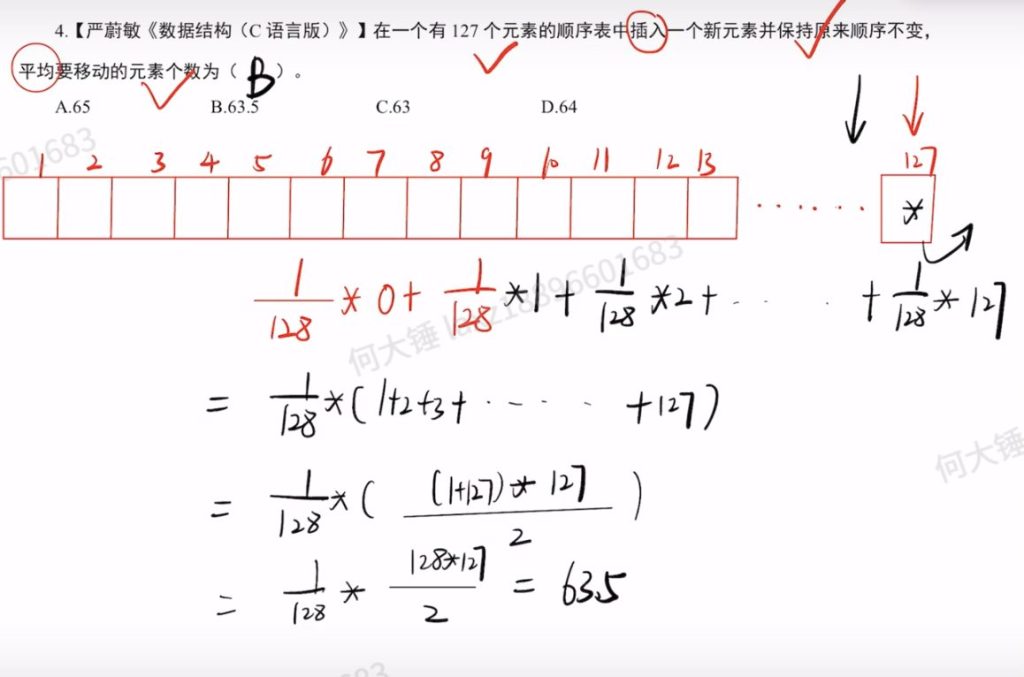 4.【严蔚敏《数据结构（C 语言版）》】在一个有 127 个元素的顺序表中插入一个新元素并保持原来顺序不变，
平均要移动的元素个数为（ B ）。
A.65 B.63.5 C.63 D.64
1 2 3 4 5 6 7 8 9 10 11 12 13 127
······ *
1/128 * 0 + 1/128 * 1 + 1/128 * 2 + ···· + 1/128 * 127
= 1/128 * (1+2+3+ ···· +127)
= 1/128 * ( (1+127) * 127 / 2 )
= 1/128 * 128*127 / 2 = 63.5
601683
何大锤 18896601683
何大锤